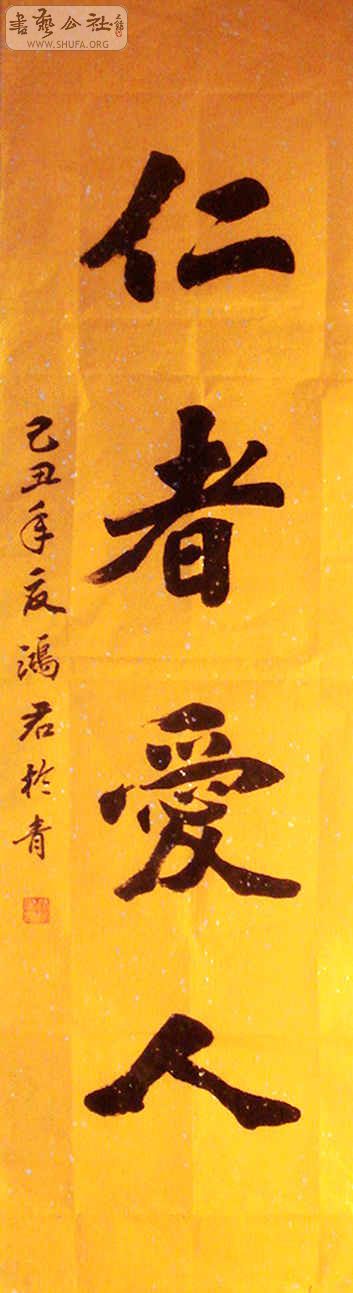 書藝公社
WWW.SHUFA.ORG
仁者愛人
己丑年夏鴻君於青